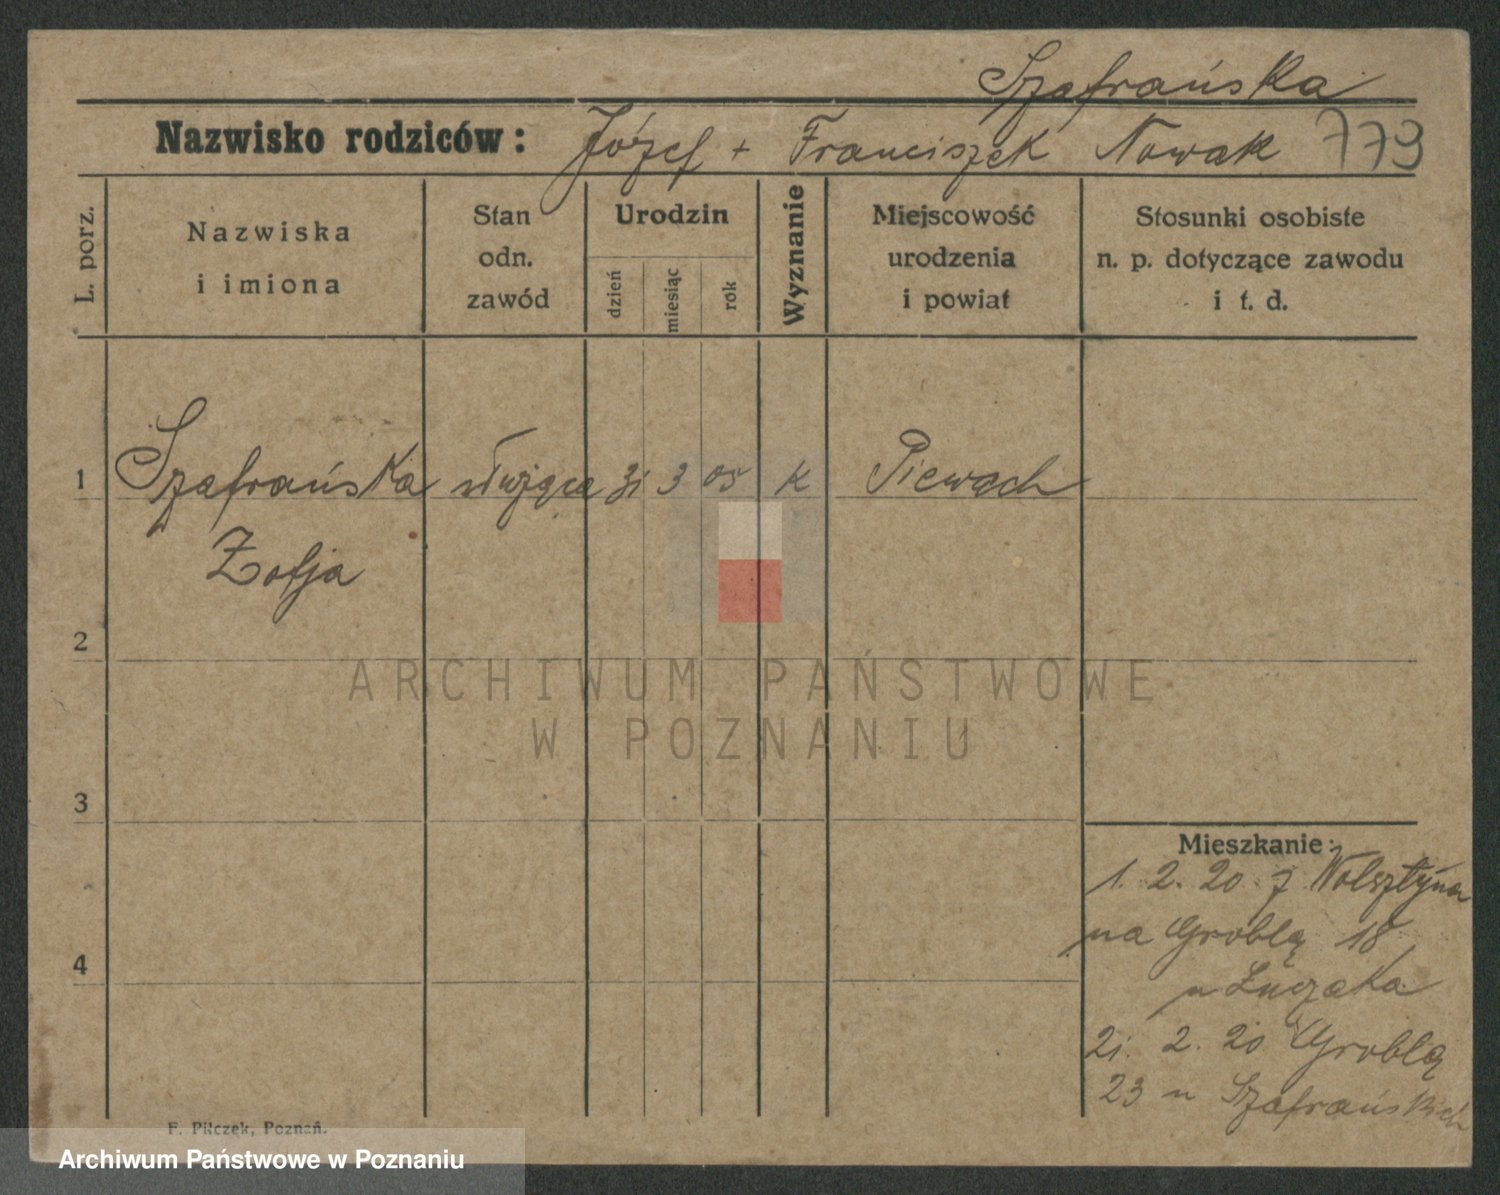 Szafrańska
Nazwisko rodziców: Józef + Franciszek Nowak 779
L. porz.
Nazwiska
i imiona
Stan
odn.
zawód
Urodzin
dzień
miesiąc
rok
Wyznanie
Miejscowość
urodzenia
i powiat
Stosunki osobiste
n. p. dotyczące zawodu
i t. d.
1 Szafrańska służąca 31 3 05 k Piewach
Zofja
2
ARCHIWUM PAŃSTWOWE
W POZNANIU
3
Mieszkanie:
1. 2. 20 z Wolsztyna
na Groblą 18
4
u Łuczaka
21. 2. 20 Groblą
23 u Szafrańskich
F. Pilczek, Poznań.
Archiwum Państwowe w Poznaniu